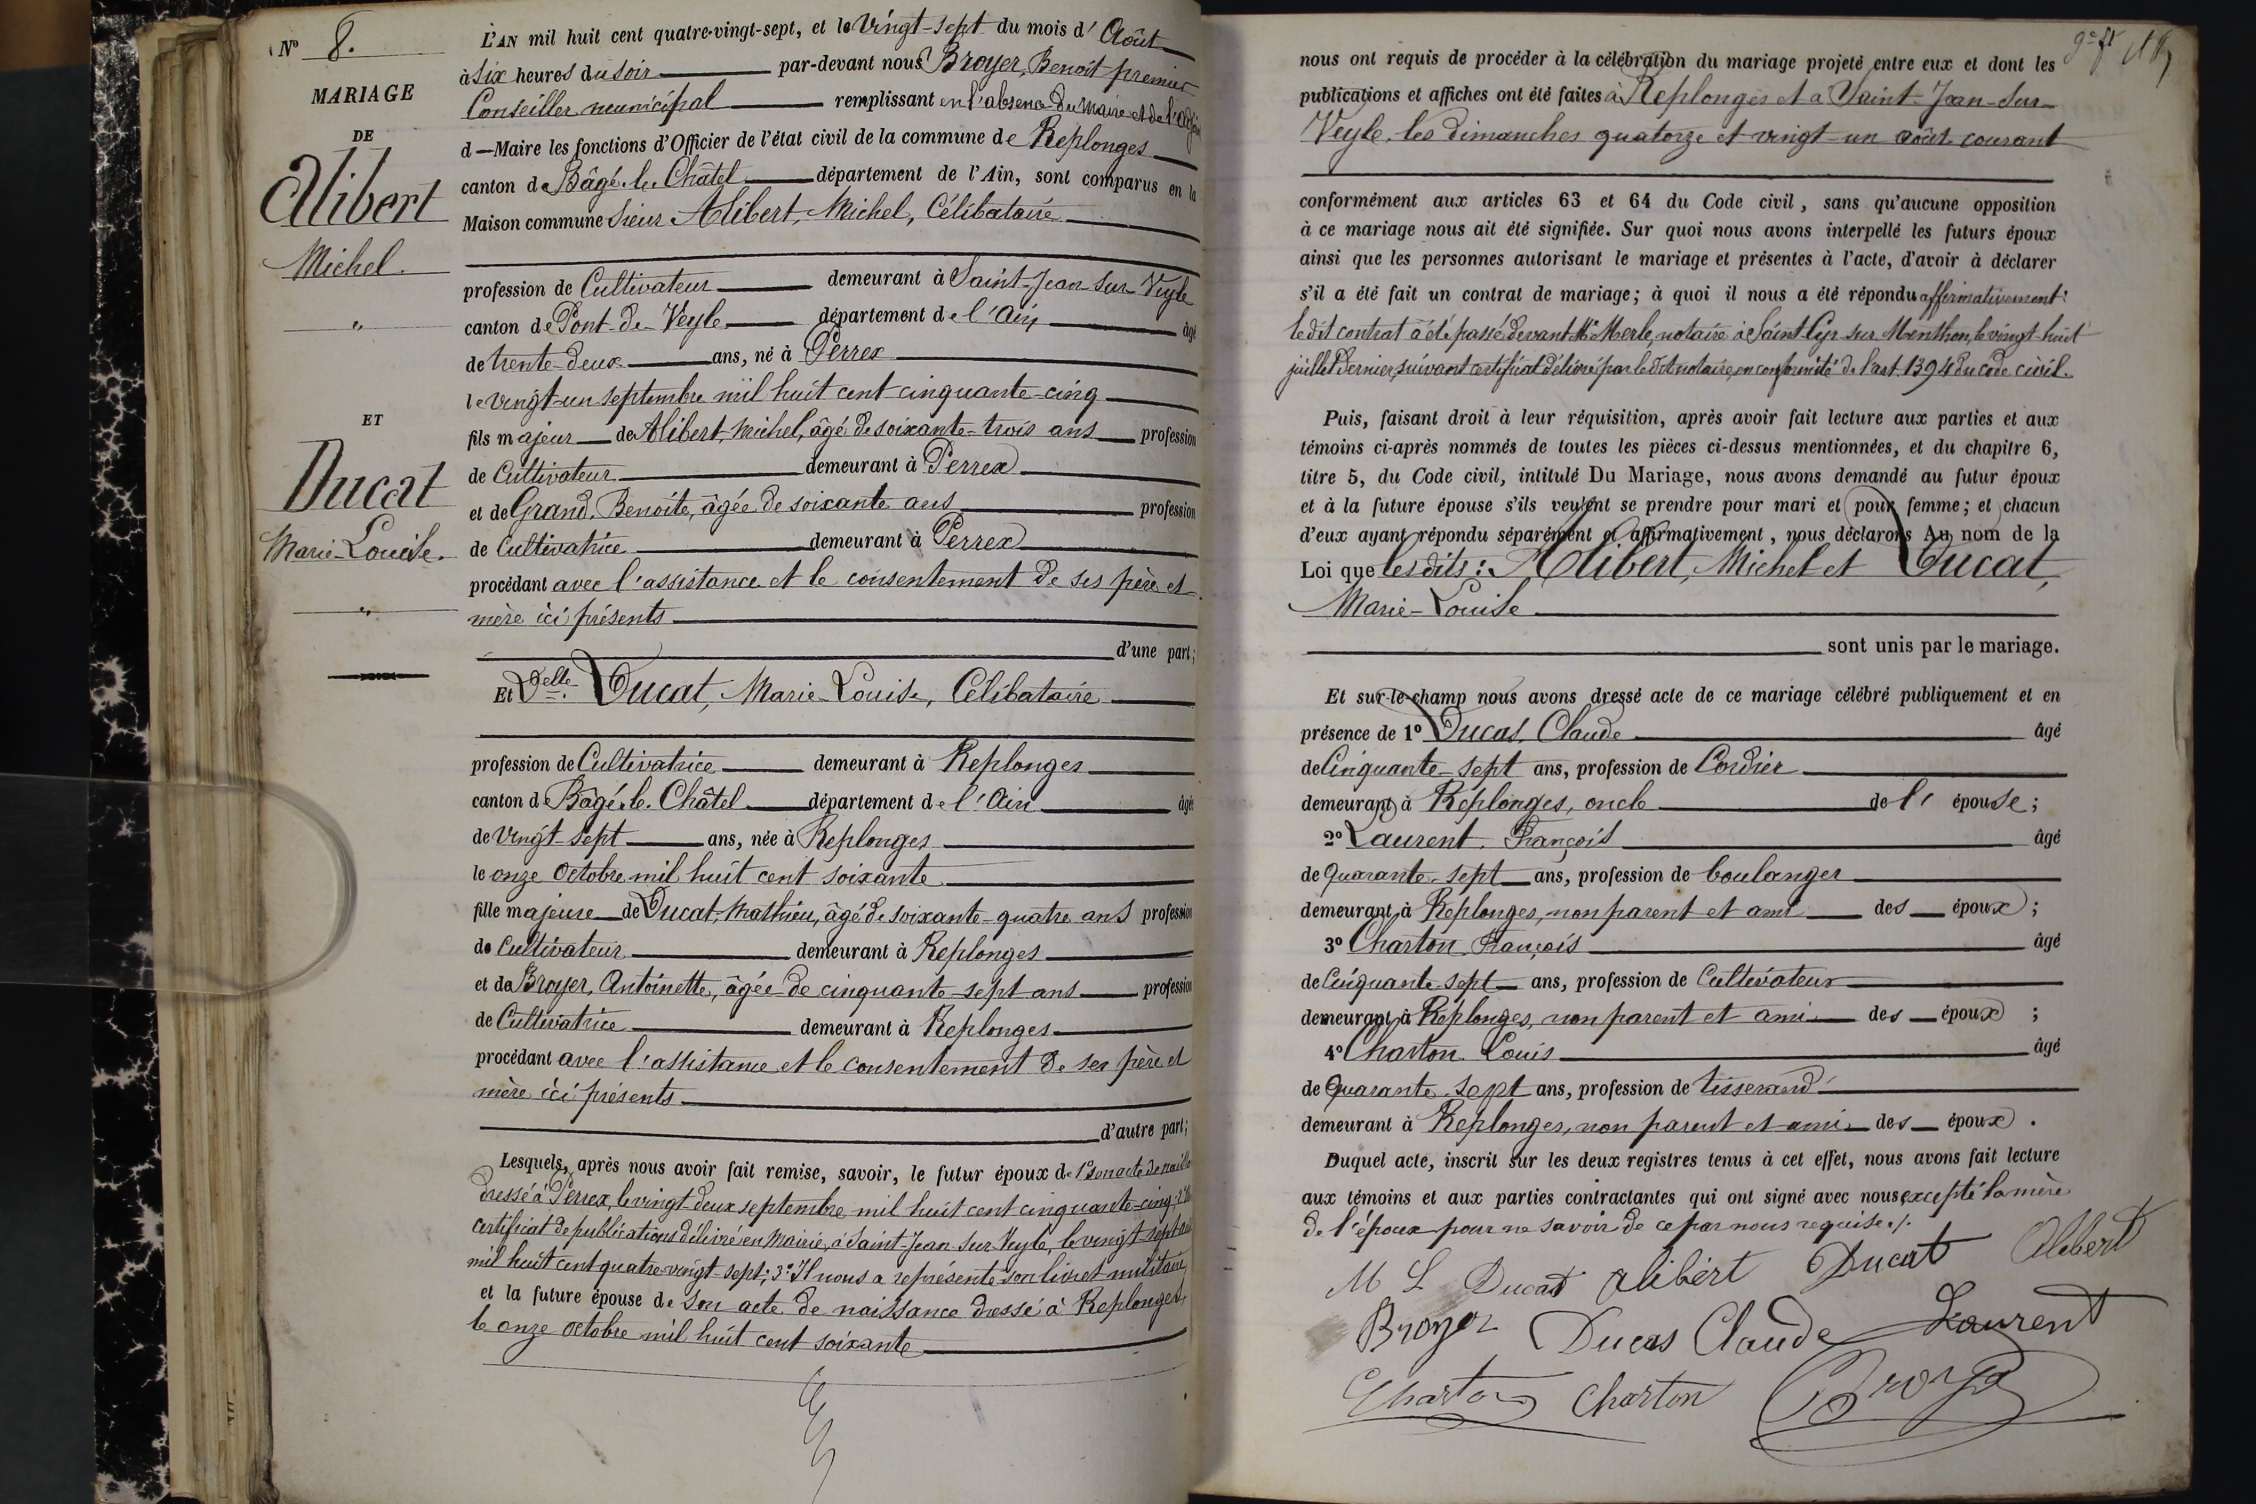 No 8.
MARIAGE
DE
Alibert
Michel.
"
ET
Ducat
Marie-Louise.
"
L'AN mil huit cent quatre-vingt-sept, et le vingt-sept du mois d'Août
à six heures du soir par-devant nous Broyer, Benoît premier
Conseiller municipal remplissant en l'absence du Maire et de l'adjoint
d — Maire les fonctions d'Officier de l'état civil de la commune de Replonges
canton de Bâgé-le-Châtel département de l'Ain, sont comparus en la
Maison commune Sieur Alibert, Michel, Célibataire
profession de Cultivateur demeurant à Saint-Jean-sur-Veyle
canton de Pont-de-Veyle département de l'Ain âgé
de trente-deux ans, né à Perrex
le vingt-un septembre mil huit cent cinquante-cinq
fils majeur de Alibert, Michel, âgé de soixante-trois ans profession
de Cultivateur demeurant à Perrex
et de Grand, Benoîte, âgée de soixante ans profession
de Cultivatrice demeurant à Perrex
procédant avec l'assistance et le consentement de ses père et
mère ici présents
d'une part;
Et Delle Ducat, Marie-Louise, Célibataire
profession de Cultivatrice demeurant à Replonges
canton de Bâgé-le-Châtel département de l'Ain âgé
de vingt-sept ans, née à Replonges
le onze Octobre mil huit cent soixante
fille majeure de Ducat, Mathieu, âgé de soixante-quatre ans profession
de Cultivateur demeurant à Replonges
et de Broyer, Antoinette, âgée de cinquante-sept ans profession
de Cultivatrice demeurant à Replonges
procédant avec l'assistance et le consentement de ses père et
mère ici présents
d'autre part;
Lesquels, après nous avoir fait remise, savoir, le futur époux de 1º son acte de naiss
dressé à Perrex, le vingt deux septembre mil huit cent cinquante-cinq;
certificat de publications délivré en Mairie, à Saint-Jean sur Veyle, le vingt sept
mil huit cent quatre-vingt-sept; 3º Il nous a représenté son livret militaire,
et la future épouse de son acte de naissance dressé à Replonges,
le onze octobre mil huit cent soixante
nous ont requis de procéder à la célébration du mariage projeté entre eux et dont les
publications et affiches ont été faites à Replonges et à Saint-Jean-sur-
Veyle, les dimanches quatorze et vingt-un août courant
conformément aux articles 63 et 64 du Code civil, sans qu'aucune opposition
à ce mariage nous ait été signifiée. Sur quoi nous avons interpellé les futurs époux
ainsi que les personnes autorisant le mariage et présentes à l'acte, d'avoir à déclarer
s'il a été fait un contrat de mariage; à quoi il nous a été répondu affirmativement:
le dit contrat a été passé devant Me Merle, notaire à Saint Cyr sur Menthon, le vingt-huit
juillet dernier, suivant certificat délivré par le dit notaire, en conformité de l'art. 1394 du code civil.
Puis, faisant droit à leur réquisition, après avoir fait lecture aux parties et aux
témoins ci-après nommés de toutes les pièces ci-dessus mentionnées, et du chapitre 6,
titre 5, du Code civil, intitulé Du Mariage, nous avons demandé au futur époux
et à la future épouse s'ils veulent se prendre pour mari et pour femme; et chacun
d'eux ayant répondu séparément et affirmativement, nous déclarons Au nom de la
Loi que les dits: Alibert, Michel et Ducat,
Marie-Louise
sont unis par le mariage.
Et sur-le-champ nous avons dressé acte de ce mariage célébré publiquement et en
présence de 1º Ducas, Claude âgé
de Cinquante-sept ans, profession de Cordier
demeurant à Replonges, oncle de l'épouse;
2º Laurent, François âgé
de quarante-sept ans, profession de boulanger
demeurant à Replonges, non parent et ami des époux;
3º Charton, François âgé
de Cinquante-sept ans, profession de Cultivateur
demeurant à Replonges, non parent et ami des époux;
4º Charton, Louis âgé
de Quarante-sept ans, profession de tisserand
demeurant à Replonges, non parent et ami des époux.
Duquel acte, inscrit sur les deux registres tenus à cet effet, nous avons fait lecture
aux témoins et aux parties contractantes qui ont signé avec nous, excepté la mère
de l'époux pour ne savoir de ce par nous requise./.
M L Ducat Alibert Ducat Alibert
Broyer Ducas Claude Laurent
Charton Charton Broyer